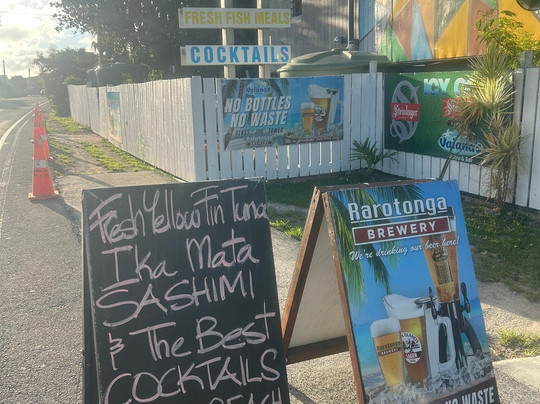 FRESH FISH MEALS
COCKTAILS
Vaiana's
NO BOTTLES
NO WASTE
ICY C
Steinlager
Vaiana's
Fresh Yellow Fin Tuna
Ika Mata
SASHIMI
& The Best
COCKTAILS
BEACH
Rarotonga
BREWERY
We're drinking our beer here!
Rarotonga
LAGER
NO WASTE